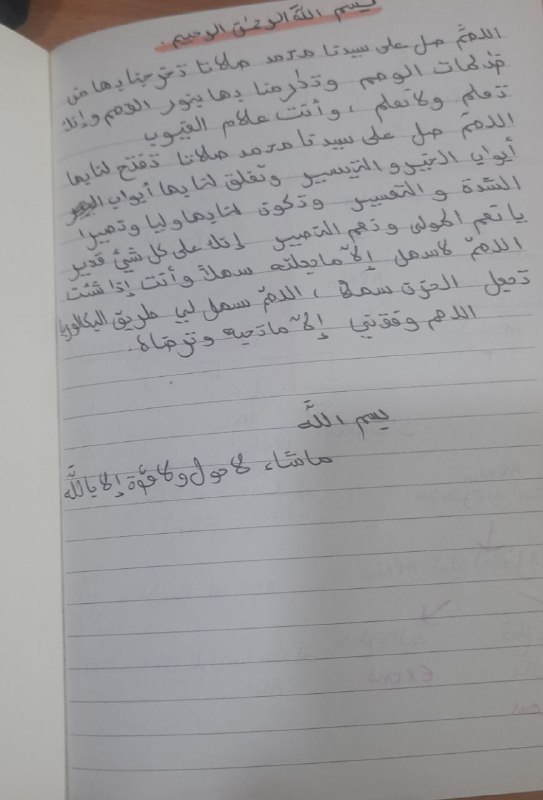 بسم الله الرحمن الرحيم.
اللهم صل على سيدنا محمد صلاتا تخرجنا بها من
ظلمات الوهم وتكرمنا بها بنور الفهم وإنك
تعلم ولا نعلم ، وأنت علام الغيوب
اللهم صل على سيدنا محمد صلاتا تفتح لنا بها
أبواب الخير و التيسير وتغلق لنا بها أبواب
الشدة و التعسير وتكون لنا بها وليا ونصيرا
يا نعم المولى ونعم النصير إنك على كل شيئ قدير
اللهم لا سهل إلا ما جعلته سهلا وأنت إذا شئت
تجعل الحزن سهلا ، اللهم سهل لي طريق البكالوريا
اللهم وفقني إلا ما تحبه وترضاه.
بسم الله
ماشاء لا حول ولا قوة إلا بالله